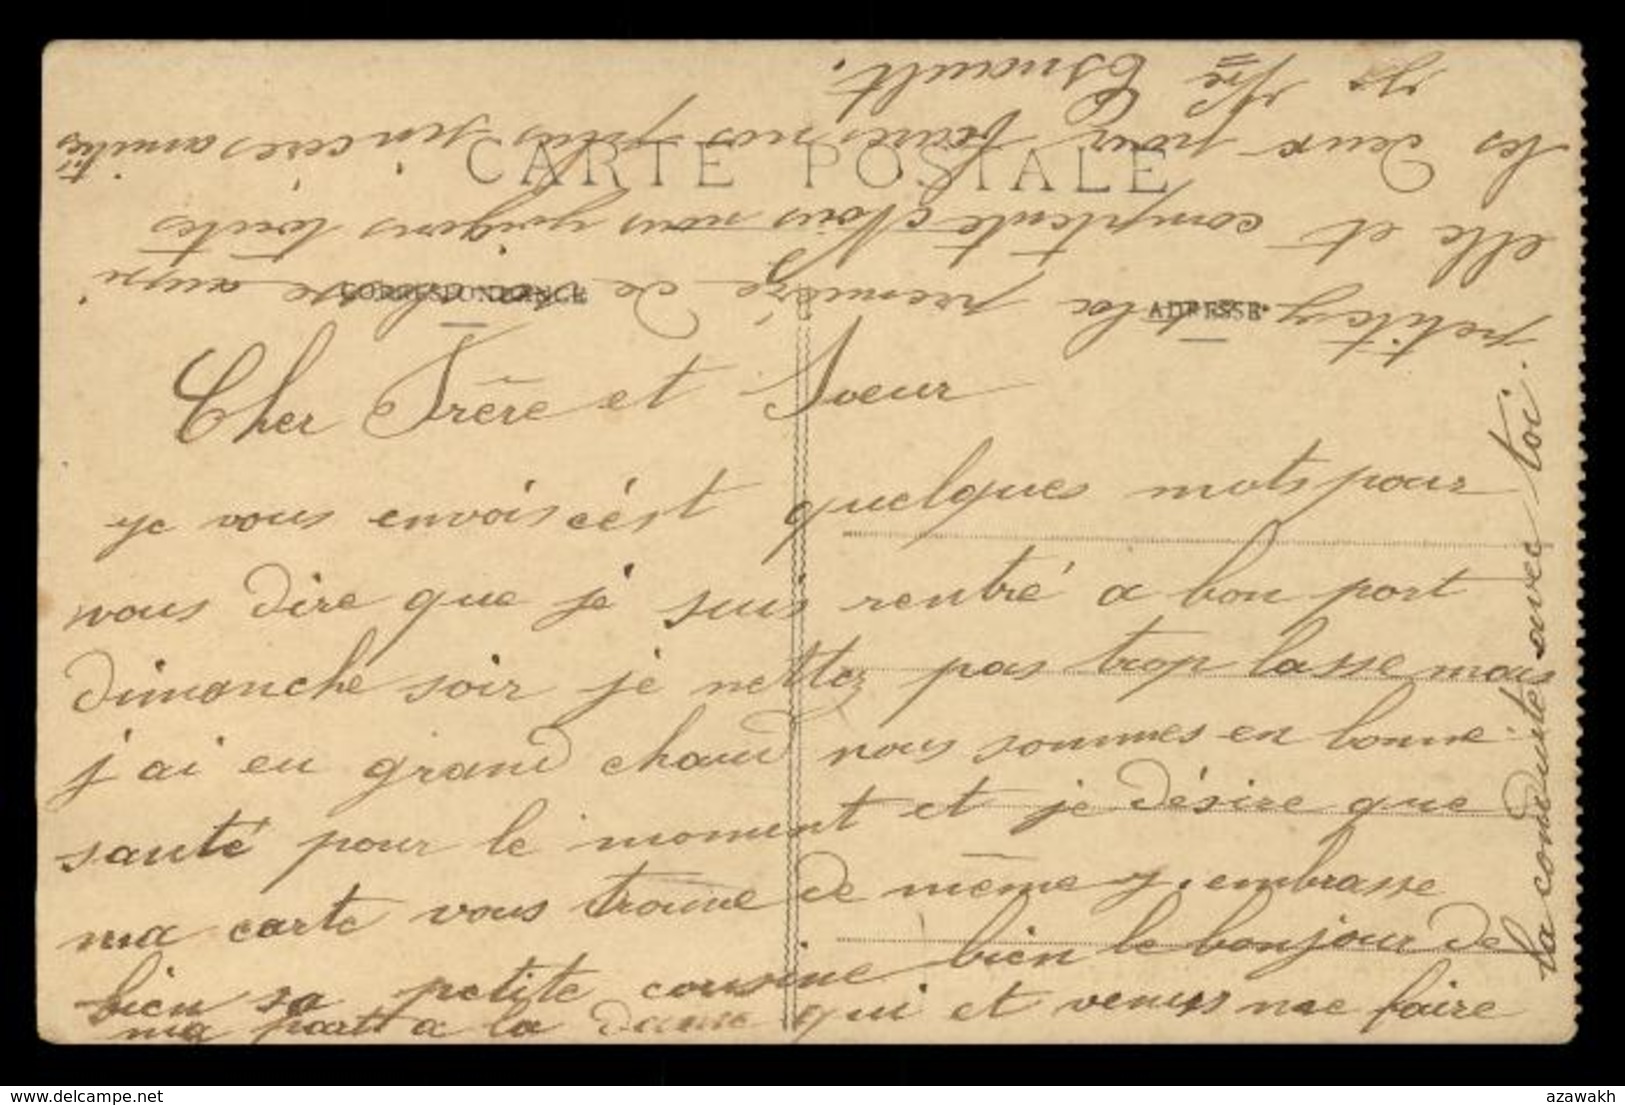 CARTE POSTALE
CORRESPONDANCE
ADRESSE
Cher Frère et Soeur
je vous envois cést quelques mots pour
vous dire que je suis rentré a bon port
dimanche soir je nettez pas trop lasse mais
j'ai eu grand chaud nous sommes en bonne
santé pour le moment et je désire que
ma carte vous trouve de même J. embrasse
bien sa petite cousine bien le bonjour de
ma part a la dame qui et venus nae faire
la conduite avec toi.
la première de
elle et comptente Nous nous joigons toutes
les deux pour vous nos plus sincères amitiés
Esnault.
delcampe.net
azawakh